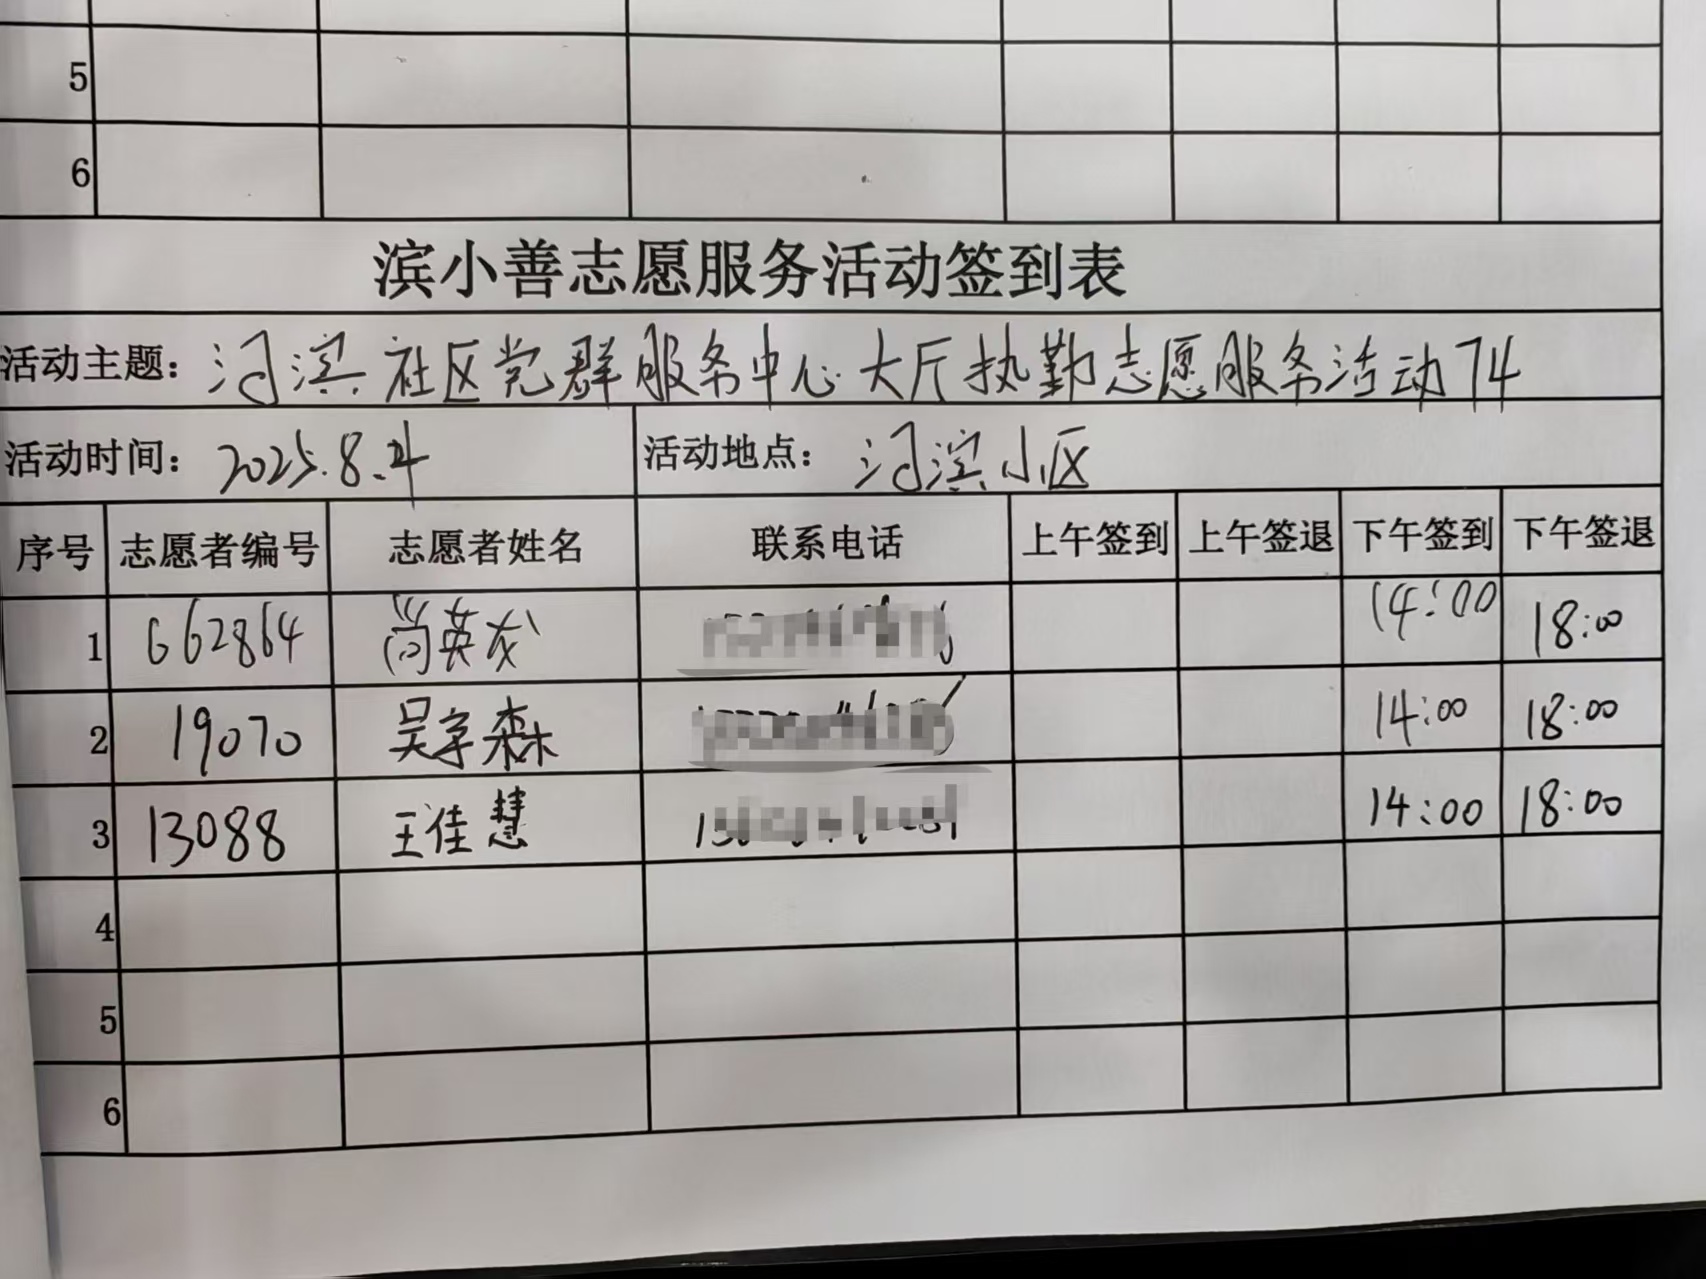 5
6
滨小善志愿服务活动签到表
活动主题：河滨社区党群服务中心大厅执勤志愿服务活动74
活动时间：2025.8.4 活动地点：河滨小区
序号 志愿者编号 志愿者姓名 联系电话 上午签到 上午签退 下午签到 下午签退
1 662864 尚英龙 14:00 18:00
2 19070 吴宇森 14:00 18:00
3 13088 王佳慧 14:00 18:00
4
5
6